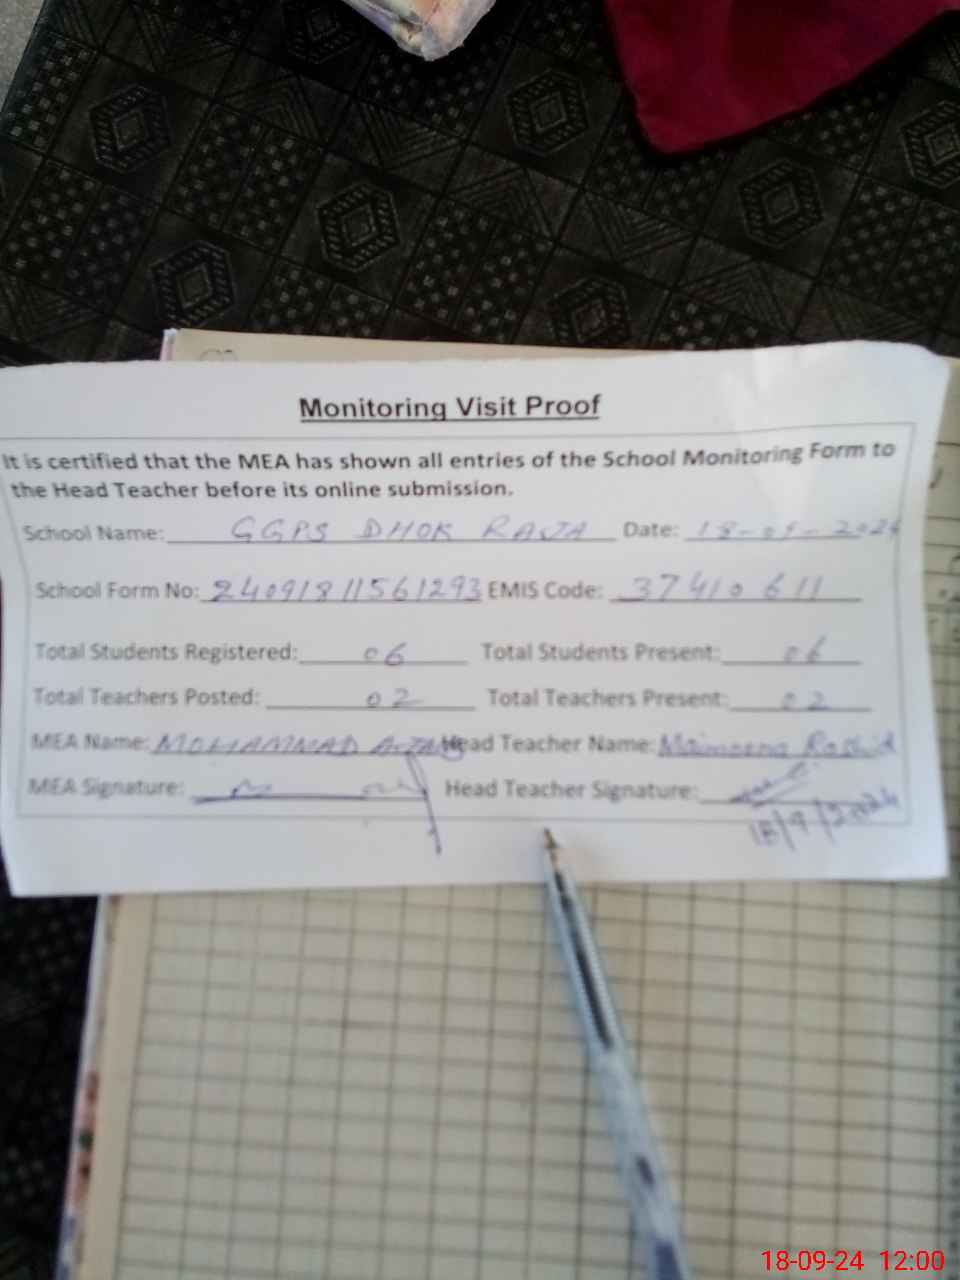 Monitoring Visit Proof
It is certified that the MEA has shown all entries of the School Monitoring Form to
the Head Teacher before its online submission.
School Name: GGPS DHOK RAJA Date: 18-09-2024
School Form No: 24091811561293 EMIS Code: 37410611
Total Students Registered: 06 Total Students Present: 06
Total Teachers Posted: 02 Total Teachers Present: 02
MEA Name: MOHAMMAD Head Teacher Name: Maimoona Rashid
MEA Signature: Head Teacher Signature:
18/9/2024
18-09-24 12:00